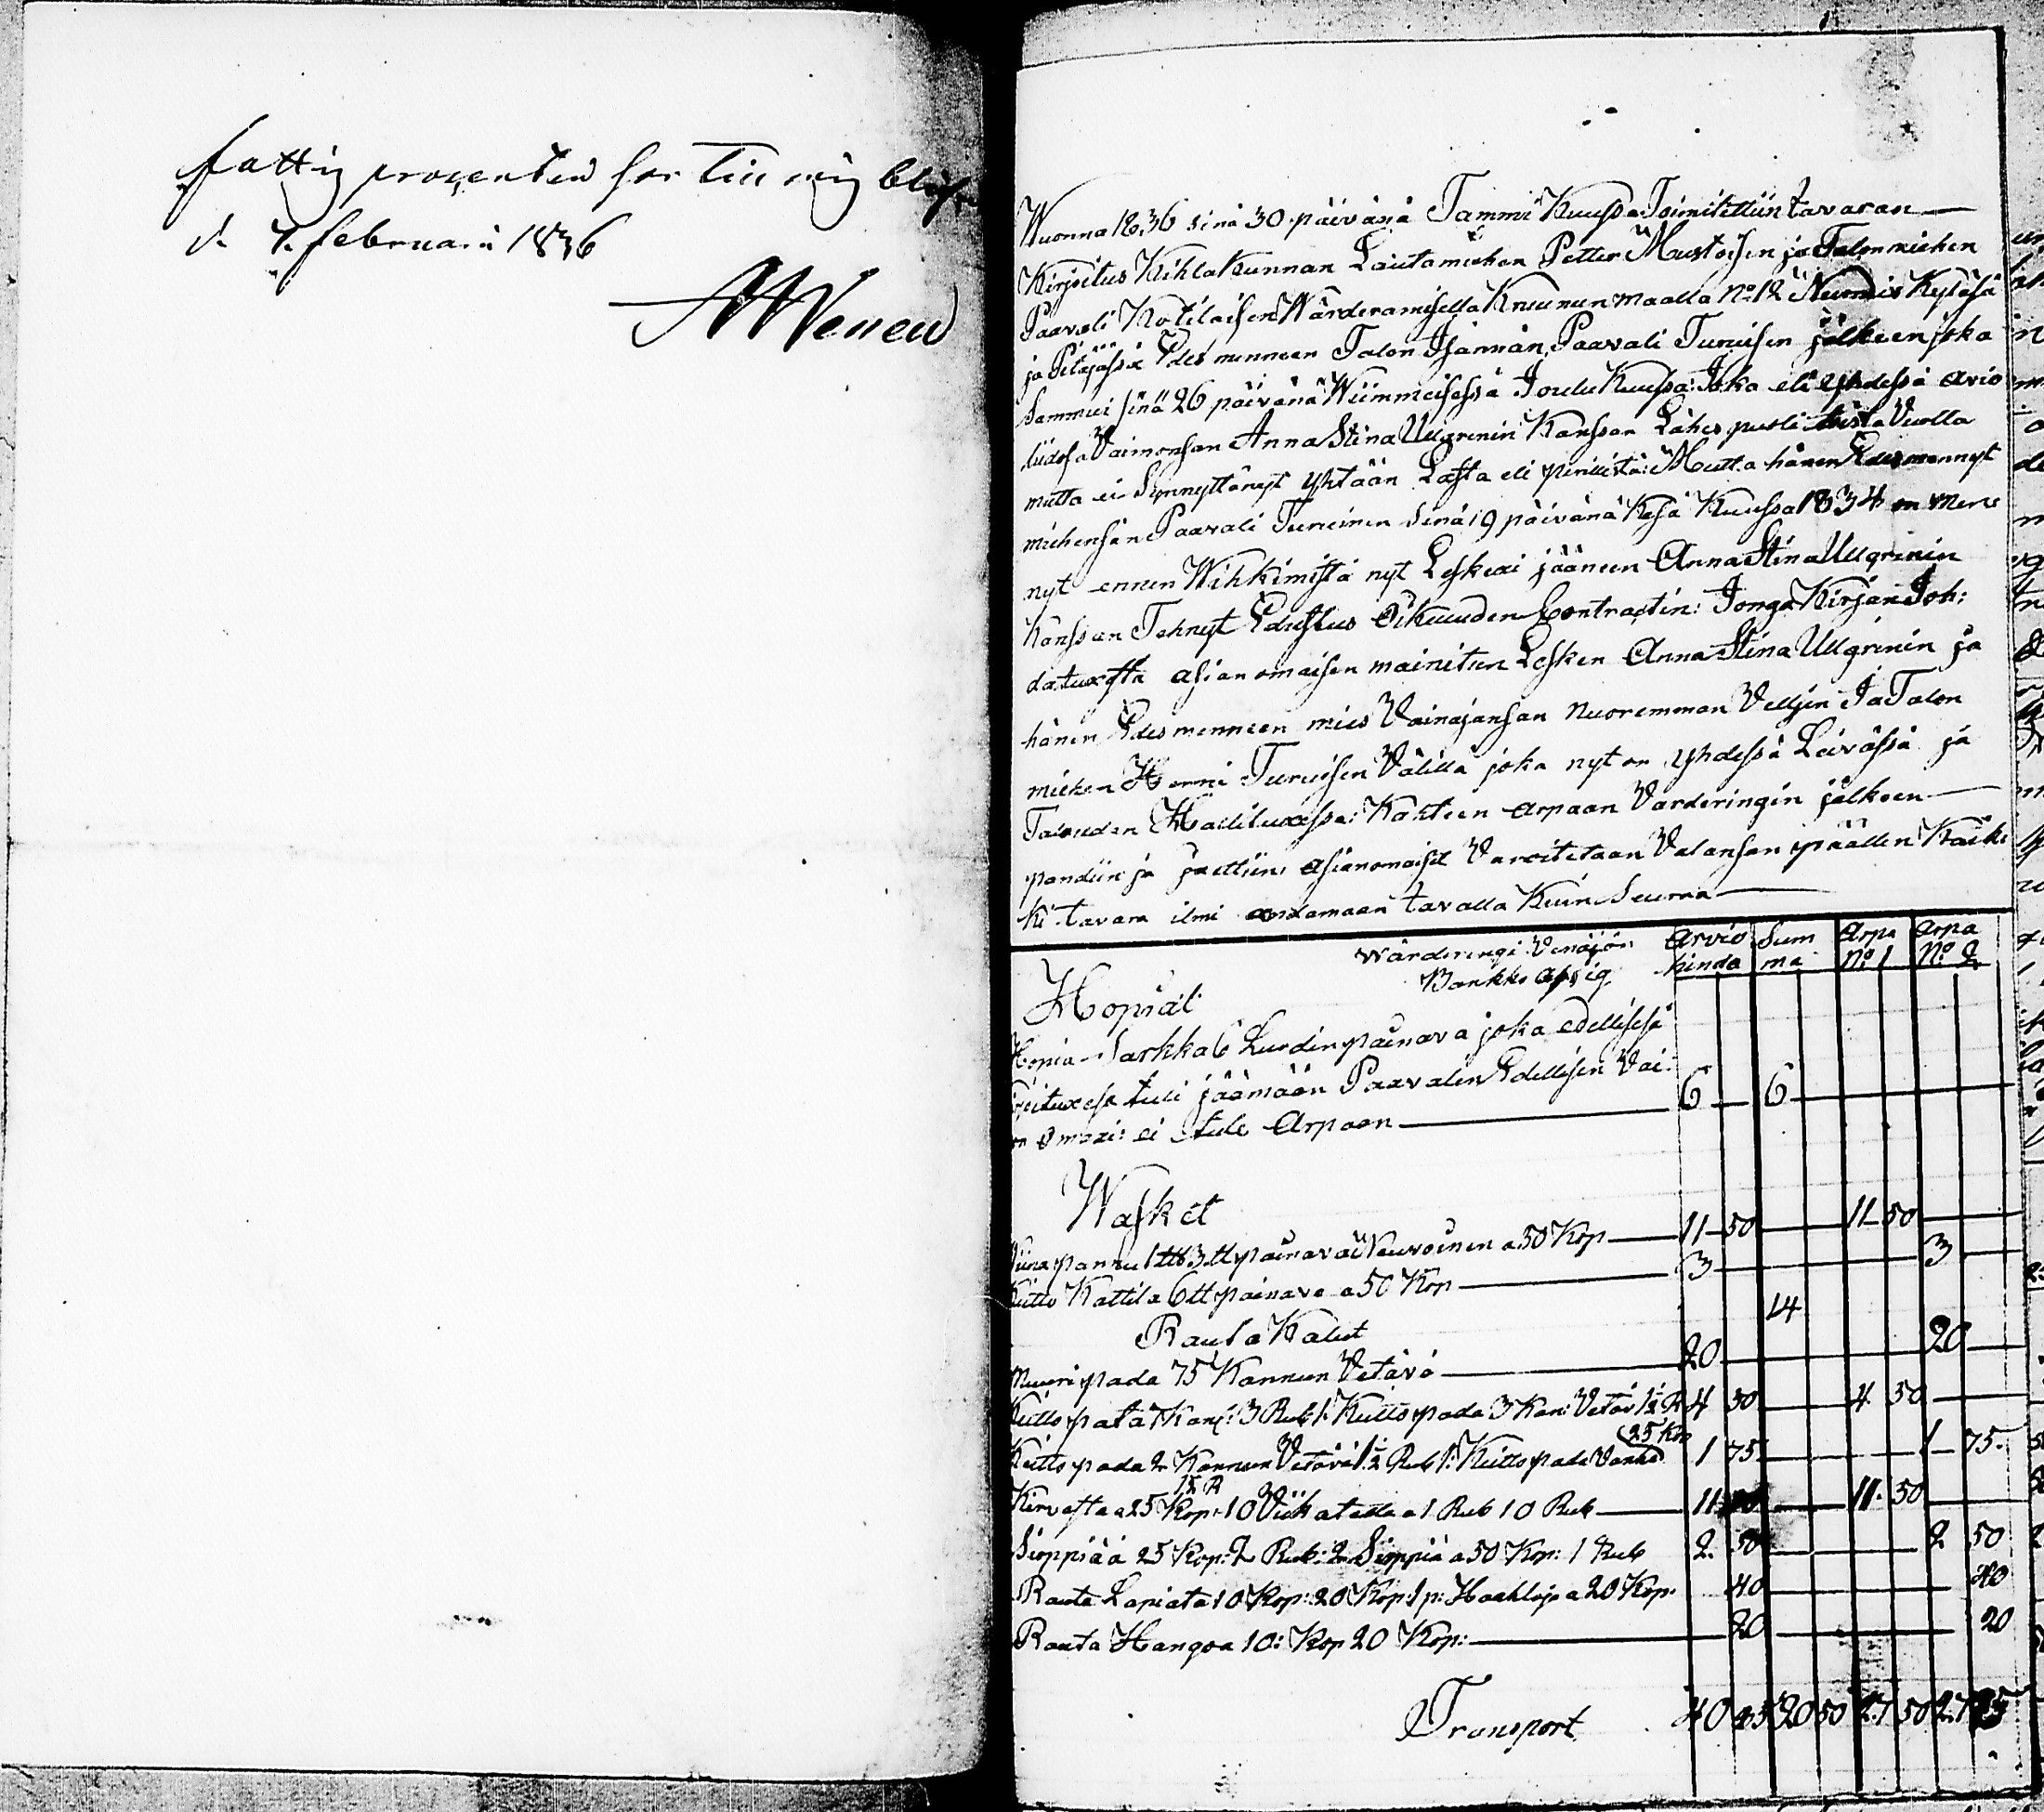 fattig procenten
d. 7. februari 1836
Wuonna 1836 sinä 30 päivänä Tammi Kuussa Toimitettiin tavaran
Kirjoitus Kihlakunnan Lautamiehen Petter Mustosen ja Talonmiehen
Paavali Kotilaisen Wärderamisella Kruunun maalla No 12 Nurmis Kyläsä
ja Pitäjässä Edes menneen Talon Isännän Paavali Turuisen jälkeen joka
Sammui sinä 26 päivänä Wiimmeisessä Joulu Kuussa: Joka eli yhdessä avio
liidosa Vaimonsan Anna Stina Ullgrenin Kanssan Lähes puoli toista Vuotta
mutta ei Synnyttänyt yhtään Lasta eli perillistä: Mutta hänen Edesmennyt
miehensän Paavali Turuinen Sinä 19 päivänä Kesä Kuussa 1834 on men
nyt ennen Wihkimistä nyt Leskexi jääneen Anna Stina Ullgrinin
Kanssan Tehnyt Edustus Oikeuuden Contractin: Jonga Kirjan Joh:
datuxesta asianomaisen mainitun Lesken Anna Stina Ullgrinin ja
hänen Edesmenneen mies Vainajansan Nuoremman Velljen Ja Talon
miehen Henni Turuisen Välillä joka nyt on yhdessä Leivässä ja
Talouden Hallituxessa: Kahteen Arpaan Varderingin jälkeen
pandiin ja jaettiin: asianomaiset Varoitetaan Valansan päällen Kaik
ki tavara ilmi andamaan tavalla Kuin Seuraa
Wärderingi Venäjän Arvio Sum Arpa Arpa
Bankko Assig hinda ma No 1 No 2
Hopiat
Hopia Sarkka 6 Luodin painava joka edellisesä
tuli jäämään Paavalin Edellisen Vai
omaxi: ei tule Arpaan 6 6
Wasket
Viina pannu 1 ℔ 3 ℔ painava a 50 Kop 11 50 11 50
Keitto Kattila 6 ℔ painava a 50 Kop 3 3
14
Rauta Kalut
Muuri pada 75 Kannun Vetävä 20 20
Keitto pata 7 Kan: 3 Rub 1: Keitto pada 3 Kan: Vetäv 1½ R 4 50 4 50
25 Kop
Keitto pada 2 Kannun Vetävä 1½ Rub 1: Keitto pada Vanha 1 75 1 75
1½ R
Kirvestta a 25 Kop: 10 Viikatetta a 1 Rub 10 Rub 11 50 11 50
Sirppiä a 25 Kop: 2 Rub: 2 Sirppiä a 50 Kop: 1 Rub 2 50 2 50
Rauta Lapiata 10 Kop: 20 Kop 1 p: Haahloja a 20 Kop 40 40
Rauta Hangoa 10: Kop 20 Kop: 20 20
Transport 40 20 50 27 50 27